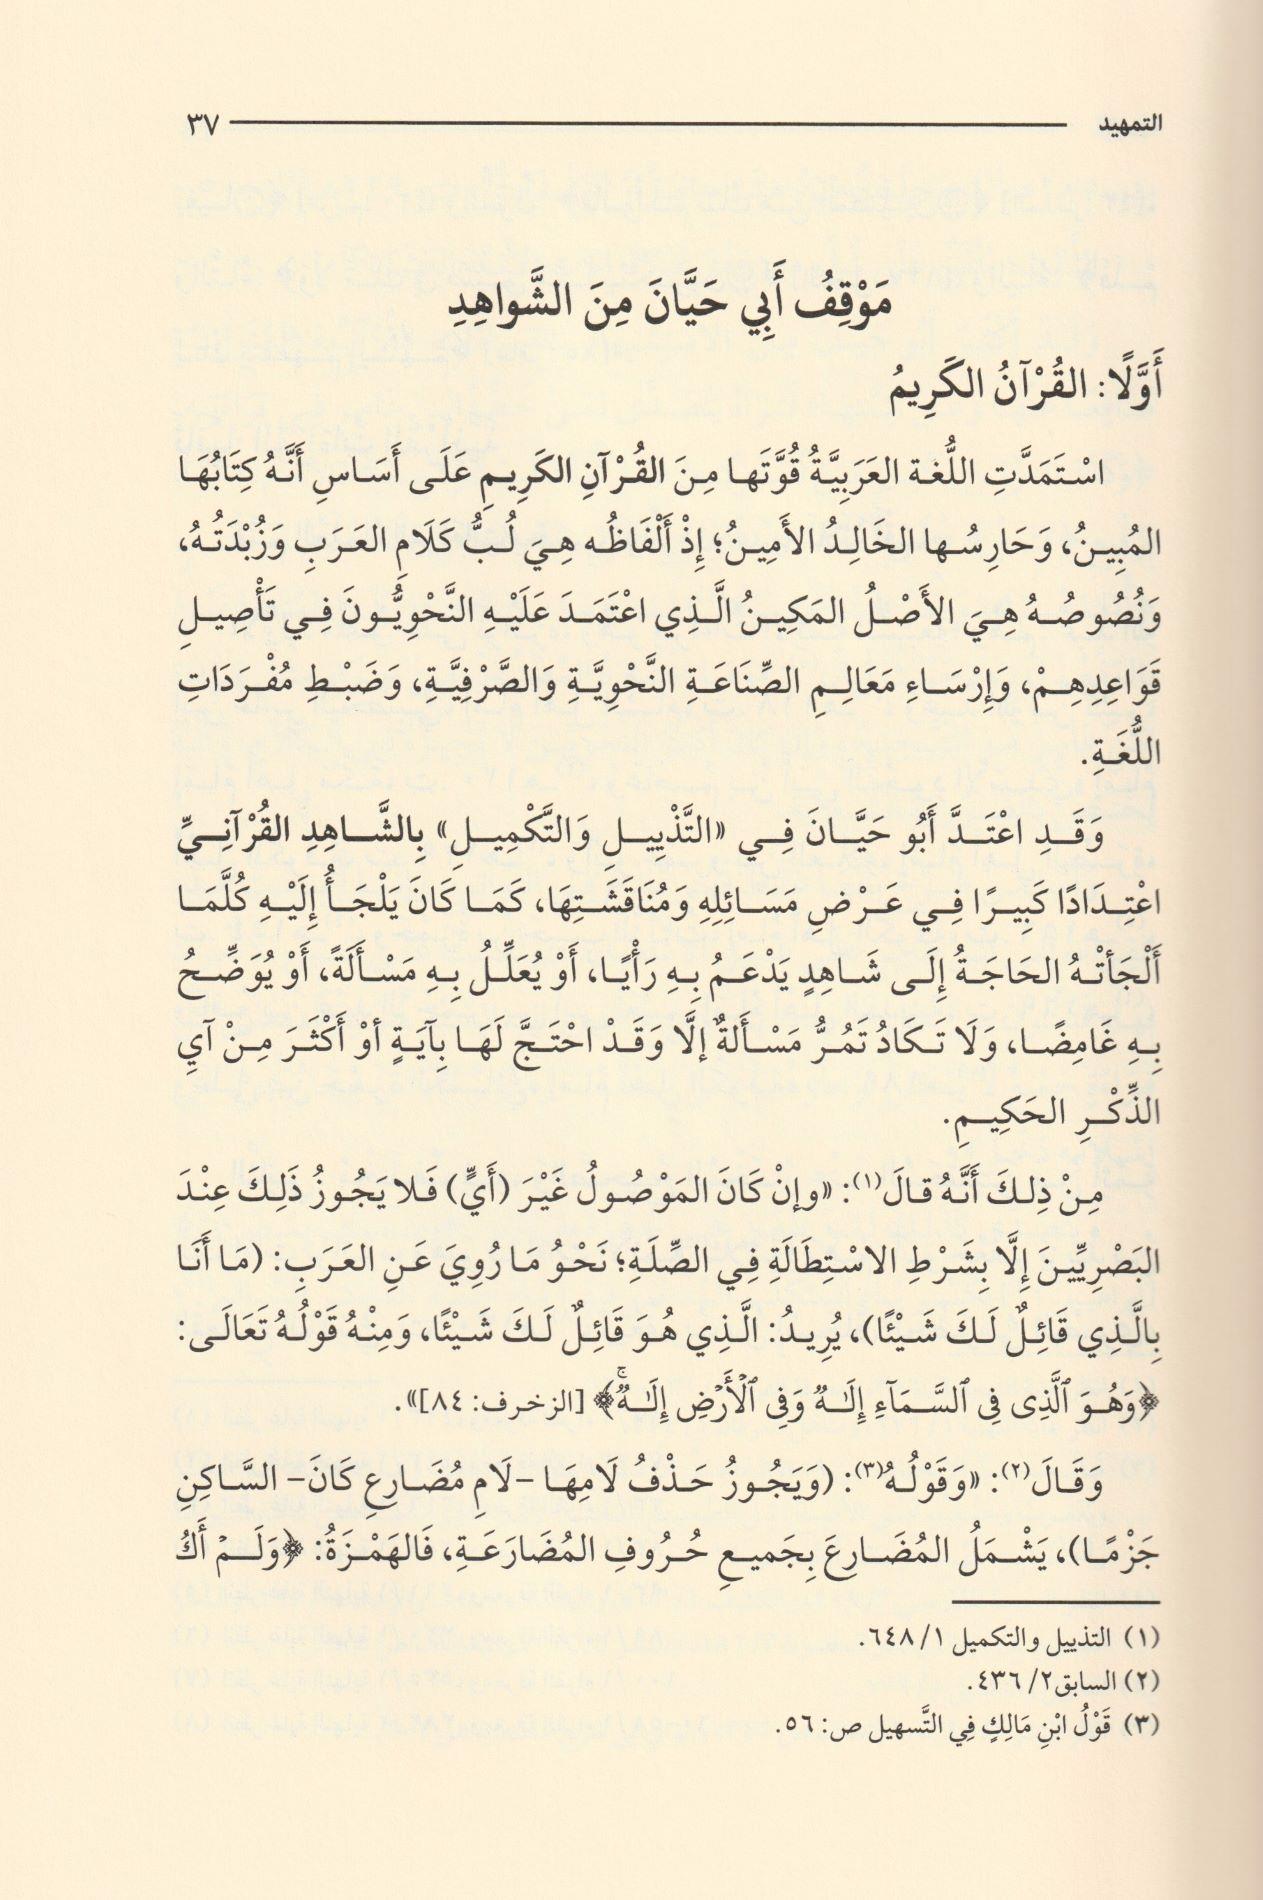 التمهيد ٣٧
مَوْقِفُ أَبِي حَيَّانَ مِنَ الشَّواهِدِ
أَوَّلًا: القُرْآنُ الكَرِيمُ
اسْتَمَدَّتِ اللُّغة العَرَبِيَّةُ قُوَّتَها مِنَ القُرْآنِ الكَرِيمِ عَلَى أَسَاسِ أَنَّهُ كِتَابُهَا
المُبِينُ، وَحَارِسُها الخَالِدُ الأَمِينُ؛ إِذْ أَلْفَاظُه هِيَ لُبُّ كَلَامِ العَرَبِ وَزُبْدَتُهُ،
وَنُصُوصُهُ هِيَ الأَصْلُ المَكِينُ الَّذِي اعْتَمَدَ عَلَيْهِ النَّحْوِيُّونَ فِي تَأْصِيلِ
قَوَاعِدِهِمْ، وَإِرْسَاءِ مَعَالِمِ الصِّنَاعَةِ النَّحْوِيَّةِ وَالصَّرْفِيَّةِ، وَضَبْطِ مُفْرَدَاتِ
اللُّغَةِ.
وَقَدِ اعْتَدَّ أَبُو حَيَّانَ فِي «التَّذْيِيلِ وَالتَّكْمِيلِ» بِالشَّاهِدِ القُرْآنِيِّ
اعْتِدَادًا كَبِيرًا فِي عَرْضِ مَسَائِلِهِ وَمُنَاقَشَتِهَا، كَمَا كَانَ يَلْجَأُ إِلَيْهِ كُلَّمَا
أَلْجَأتْهُ الحَاجَةُ إِلَى شَاهِدٍ يَدْعَمُ بِهِ رَأْيًا، أَوْ يُعَلِّلُ بِهِ مَسْأَلَةً، أَوْ يُوَضِّحُ
بِهِ غَامِضًا، وَلَا تَكَادُ تَمُرُّ مَسْأَلةٌ إلَّا وَقَدْ احْتَجَّ لَهَا بِآيَةٍ أوْ أَكْثَرَ مِنْ آيِ
الذِّكْرِ الحَكِيمِ.
مِنْ ذِلكَ أَنَّهُ قالَ(١): «وإنْ كَانَ المَوْصُولُ غَيْرَ (أَيٍّ) فَلا يَجُوزُ ذَلِكَ عِنْدَ
البَصْرِيِّينَ إِلَّا بِشَرْطِ الاسْتِطَالَةِ فِي الصِّلَةِ؛ نَحْوُ مَا رُوِيَ عَنِ العَرَبِ: (مَا أَنَا
بِالَّذِي قَائِلٌ لَكَ شَيْئًا)، يُرِيدُ: الَّذِي هُوَ قَائِلٌ لَكَ شَيْئًا، وَمِنْهُ قَوْلُهُ تَعَالَى:
﴿وَهُوَ ٱلَّذِى فِى ٱلسَّمَآءِ إِلَٰهٌ وَفِى ٱلْأَرْضِ إِلَٰهٌۚ﴾ [الزخرف: ٨٤]».
وَقَالَ(٢): «وَقَوْلُهُ(٣): (وَيَجُوزُ حَذْفُ لَامِهَا -لَامِ مُضَارِعِ كَانَ- السَّاكِنِ
جَزْمًا)، يَشْمَلُ المُضَارِعَ بِجَميعِ حُروفِ المُضَارَعَةِ، فَالهَمْزَةُ: ﴿وَلَمْ أَكُ
(١) التذييل والتكميل ١/ ٦٤٨.
(٢) السابق٢/ ٤٣٦.
(٣) قَوْلُ ابْنِ مَالِكٍ فِي التَّسهيل ص: ٥٦.